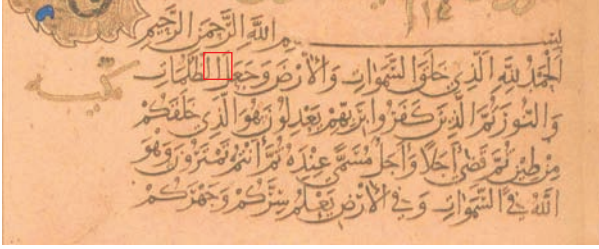 بِسْمِ اللَّهِ الرَّحْمَنِ الرَّحِيمِ
الْحَمْدُ لِلَّهِ الَّذِي خَلَقَ السَّمَوَاتِ وَالْأَرْضَ وَجَعَلَ الظُّلُمَاتِ
مكيه
وَالنُّورَ ثُمَّ الَّذِينَ كَفَرُوا بِرَبِّهِمْ يَعْدِلُونَ هُوَ الَّذِي خَلَقَكُمْ
مِنْ طِينٍ ثُمَّ قَضَى أَجَلًا وَأَجَلٌ مُسَمًّى عِنْدَهُ ثُمَّ أَنْتُمْ تَمْتَرُونَ وَهُوَ
اللَّهُ فِي السَّمَوَاتِ وَفِي الْأَرْضِ يَعْلَمُ سِرَّكُمْ وَجَهْرَكُمْ